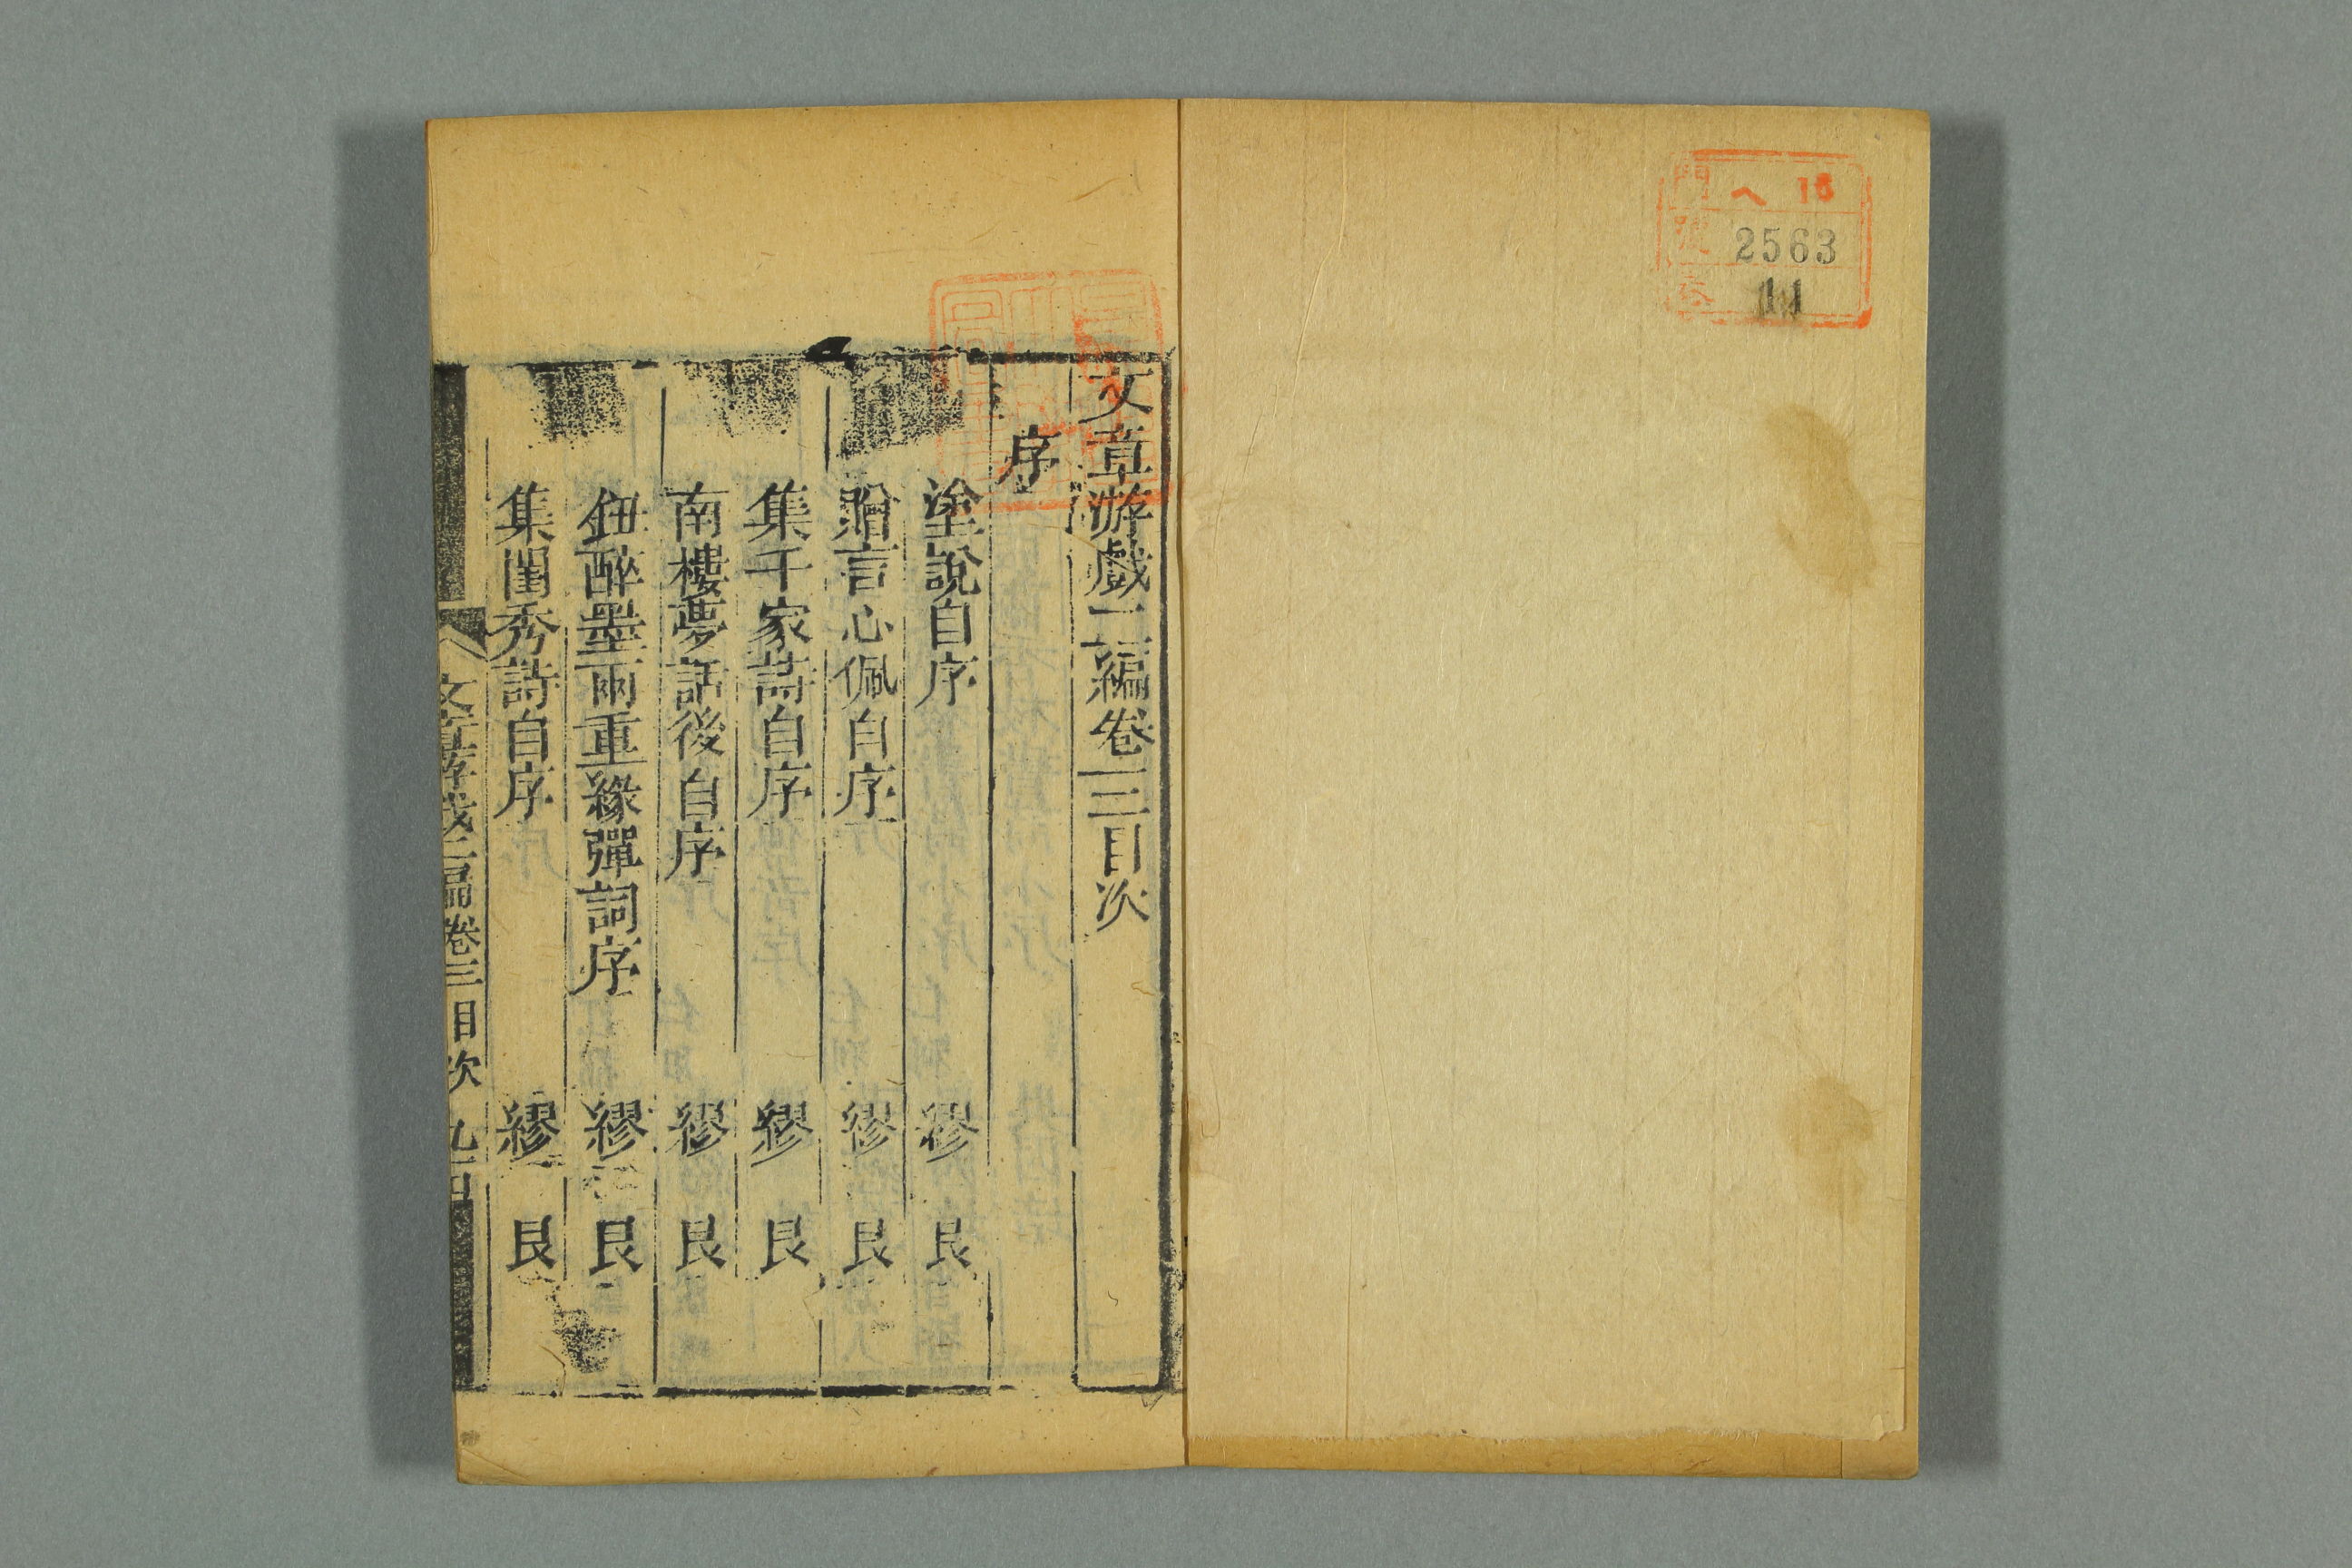 門 ヘ 16
號 2563
卷 11
文章游戲二編卷三目次
序
塗說自序 繆艮
贈言心佩自序 繆艮
集千家詩自序 繆艮
南樓夢話後自序 繆艮
鈕醉墨雨重緣彈詞序 繆艮
集閨秀詩自序 繆艮
文章游戲二編卷三目次